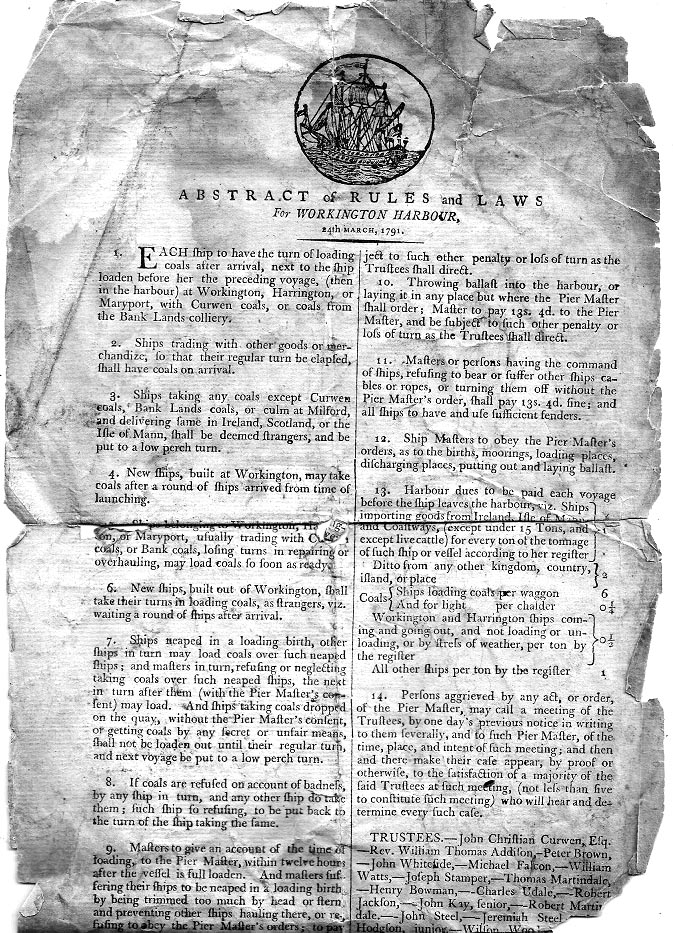 ABSTRACT of RULES and LAWS
For WORKINGTON HARBOUR,
24th MARCH, 1791.
1. EACH ſhip to have the turn of loading
coals after arrival, next to the ſhip
loaden before her the preceding voyage, (then
in the harbour) at Workington, Harrington, or
Maryport, with Curwen coals, or coals from
the Bank Lands colliery.
2. Ships trading with other goods or mer-
chandize, ſo that their regular turn be elapſed,
ſhall have coals on arrival.
3. Ships taking any coals except Curwen
coals, Bank Lands coals, or culm at Milford,
and delivering ſame in Ireland, Scotland, or the
Iſle of Mann, ſhall be deemed ſtrangers, and be
put to a low perch turn.
4. New ſhips, built at Workington, may take
coals after a round of ſhips arrived from time of
launching.
Ships belonging to Workington,
ton, or Maryport, uſually trading with
coals, or Bank coals, loſing turns in repairing or
overhauling, may load coals ſo ſoon as ready.
6. New ſhips, built out of Workington, ſhall
take their turns in loading coals, as ſtrangers, viz.
waiting a round of ſhips after arrival.
7. Ships neaped in a loading birth, other
ſhips in turn may load coals over ſuch neaped
ſhips; and maſters in turn, refuſing or neglecting
taking coals over ſuch neaped ſhips, the next
in turn after them (with the Pier Maſter's con-
ſent) may load. And ſhips taking coals dropped
on the quay, without the Pier Maſter's conſent,
or getting coals by any ſecret or unfair means,
ſhall not be loaden out until their regular turn,
and next voyage be put to a low perch turn.
8. If coals are refuſed on account of badneſs,
by any ſhip in turn, and any other ſhip do take
them; ſuch ſhip ſo refuſing, to be put back to
the turn of the ſhip taking the ſame.
9. Maſters to give an account of the time of
loading, to the Pier Maſter, within twelve hours
after the veſſel is full loaden. And maſters ſuf-
fering their ſhips to be neaped in a loading birth
by being trimmed too much by head or ſtern
and preventing other ſhips hauling there, or re-
fuſing to obey the Pier Maſter's orders; to pay
ject to ſuch other penalty or loſs of turn as the
Truſtees ſhall direct.
10. Throwing ballaſt into the harbour, or
laying it in any place but where the Pier Maſter
ſhall order; Maſter to pay 13s. 4d. to the Pier
Maſter, and be ſubject to ſuch other penalty or
loſs of turn as the Truſtees ſhall direct.
11. Maſters or perſons having the command
of ſhips, refuſing to bear or ſuffer other ſhips ca-
bles or ropes, or turning them off without the
Pier Maſter's order, ſhall pay 13s. 4d. fine; and
all ſhips to have and uſe ſufficient fenders.
12. Ship Maſters to obey the Pier Maſter's
orders, as to the births, moorings, loading places,
diſcharging places, putting out and laying ballaſt.
13. Harbour dues to be paid each voyage
before the ſhip leaves the harbour, viz. Ships
importing goods from Ireland, Iſle of Mann
and Coaſtways, (except under 15 Tons, and
except live cattle) for every ton of the tonnage
of ſuch ſhip or veſſel according to her regiſter
Ditto from any other kingdom, country,
iſland, or place } 2
Coals { Ships loading coals per waggon 6
And for light per chalder 0¼
Workington and Harrington ſhips com-
ing and going out, and not loading or un-
loading, or by ſtreſs of weather, per ton by
the regiſter } 0½
All other ſhips per ton by the regiſter 1
14. Perſons aggrieved by any act, or order,
of the Pier Maſter, may call a meeting of the
Truſtees, by one day's previous notice in writing
to them ſeverally, and to ſuch Pier Maſter, of the
time, place, and intent of ſuch meeting; and then
and there make their caſe appear, by proof or
otherwiſe, to the ſatisfaction of a majority of the
ſaid Truſtees at ſuch meeting, (not leſs than five
to conſtitute ſuch meeting) who will hear and de-
termine every ſuch caſe.
TRUSTEES.—John Chriſtian Curwen, Eſq.
—Rev. William Thomas Addiſon,—Peter Brown,
—John Whiteſide,—Michael Falcon,—William
Watts,—Joſeph Stamper,—Thomas Martindale,
—Henry Bowman,—Charles Udale,—Robert
Jackſon,—John Kay, ſenior,—Robert Martin-
dale.—John Steel,—Jeremiah Steel
Hodgſon, junior,—Wilſon